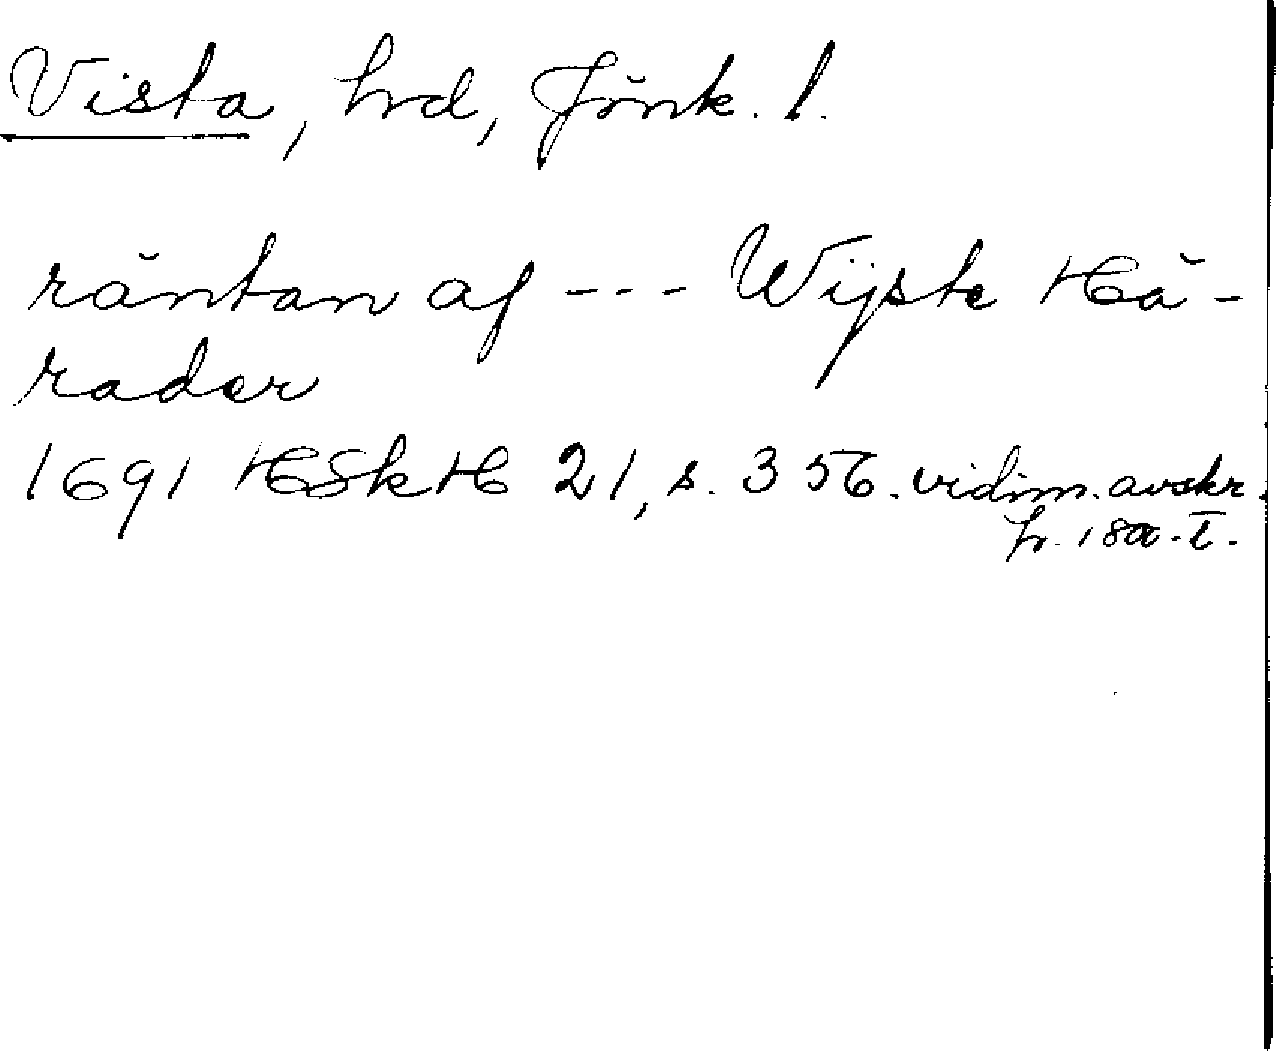 Vista, hrd, Jönk. l.
räntan af --- Wijste Hä-
rader
1691 HSkH 21, s. 356. vidim. avskr.
fr. 1800-t.